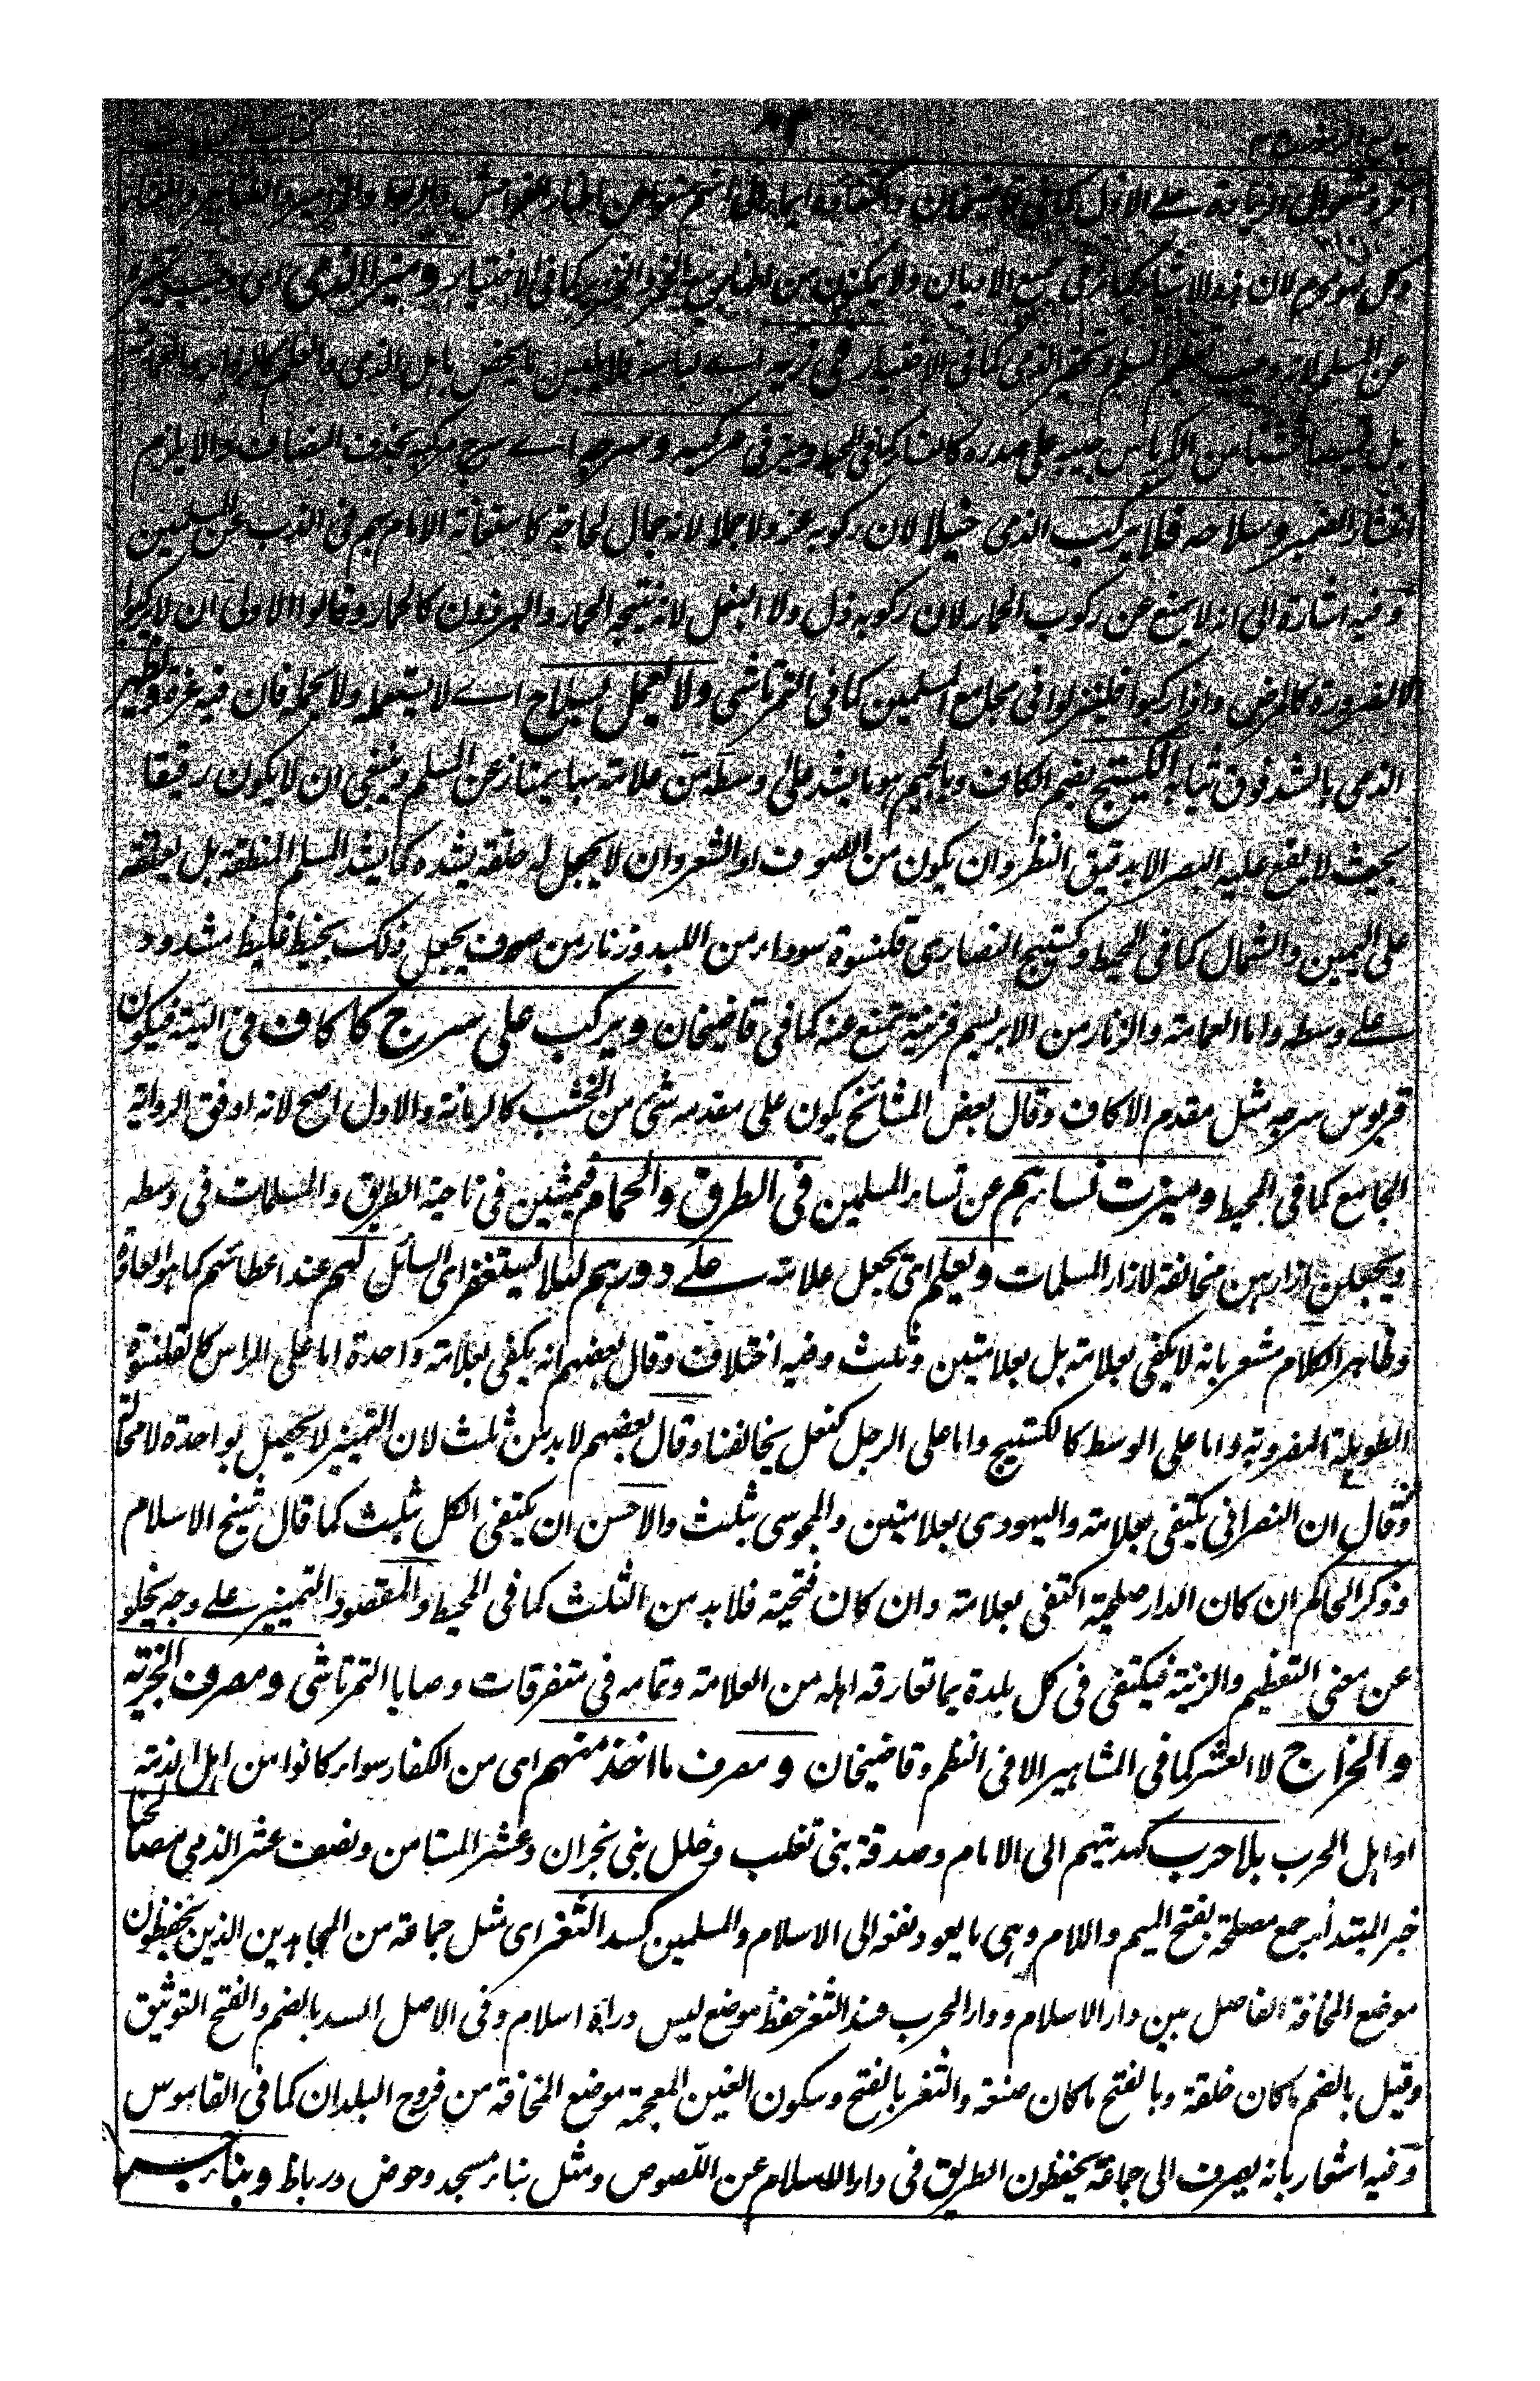 وكل هو محرم لان هذه الاشياء كبائر في جميع الاديان ولا يمكنون من كما في الاختيار وميز الذمي اى وجب تمييزه
عن المسلم لانه وجب تعظيم المسلم وتحقير الذمي كما في الاختيار في زيه اے لباسه فلا يلبس ما يخص باهل
بل قميصا خشنا من الكرباس جيبه على صدره كالنساء كما في المحيط وميز في مركبه وسرجه اے سرج مركبه بحذف المضاف والا يلزم
انتشار الضمير وسلاحه فلا يركب الذمى خيلا لان ركوبه عز ولا جملا لانه جمال لحاجة كاستعانة الامام بهم فى الذب عن المسلمين
وفيه اشارة الى انه لا يمنع عن ركوب الحمار لان ركوبه ذل ولا البغل لانه نتيجة الحمار والبرذون كالحمار وقالوا الاولى ان لا يركبوا
الا لضرورة كالمرض واذا ركبوا فلينزلوا فى مجامع المسلمين كما فى التمرتاشى ولا يعمل بسلاح اے لا يستعمله ولا يحمله فان فيه عزة ويظهر
الذمى بالشد فوق ثيابه الكستيج بضم الكاف وبالجيم هو ما يشد على وسطه من علامة بها يمتاز عن المسلم وينبغى ان لا يكون رقيقا
بحيث لا يقع عليه البصر الا بدقيق النظر وان يكون من الصوف او الشعر وان لا يجعل له حلقة يشده كما يشد المسلم المنطقة بل يعلقه
على اليمين والشمال كما فى المحيط وكستيج النصارى قلنسوة سوداء من اللبد وزنار من صوف يجعل ذلك بخيط غليظ مشدود
علے وسطه واما العمامة والزنار من الابريسم فزينة يمنع عنه كما فى قاضيخان ويركب على سرج كاكاف فى الهيئة فيكون
قربوس سرجه مثل مقدم الاكاف وقال بعض المشائخ يكون على مقدمه شئ من الخشب كالرمانة والاول اصح لانه اوفق الرواية
الجامع كما فى المحيط وميزت نساؤهم عن نساء المسلمين فى الطرق والحمام فيمشين فى ناحية الطريق والمسلمات فى وسطه
ويجعلن ازارهن مخالفة لازار المسلمات ويعلم اى يجعل علامته علے دورهم لئلا يستغفر اى السائل لهم عند اعطائهم كما هو العادة
وظاهر الكلام مشعر بانه لا يكفى بعلامة بل بعلامتين وثلث وفيه اختلاف وقال بعضهم انه يكفى بعلامة واحدة اما على الراس كالقلنسوة
الطويلة المضروبة واما على الوسط كالكستيج واما على الرجل كنعل يخالفنا وقال بعضهم لا بد من ثلث لان التمييز لا يحصل بواحدة لا محالة
وقال ان النصرانى يكتفى بعلامة واليهودى بعلامتين والمجوسى بثلث والاحسن ان يكتفى الكل بثلث كما قال شيخ الاسلام
وذكر الحاكم ان كان الدار صلحية اكتفى بعلامة وان كان فتحية فلا بد من الثلث كما فى المحيط والمقصود التمييز علے وجه يخلو
عن معنى التعظيم والزينة فيكتفى فى كل بلدة بما تعارفه اهله من العلامة وتمامه فى متفرقات وصايا التمرتاشى ومصرف الجزية
والخراج لا العشر كما فى المشاهير الا فى النظم وقاضيخان و مصرف ما اخذ منهم اى من الكفار سواء كانوا من اهل الذمة
او اهل الحرب بلا حرب كهديتهم الى الامام وصدقة بنى تغلب وحلل بنى نجران وعشر المستامن ونصف عشر الذمي مصالحنا
خبر المبتدأ جمع مصلحة بفتح الميم واللام وهى ما يعود نفعه الى الاسلام والمسلمين كسد الثغر اى مثل جماعة من المجاهدين الذين يحفظون
موضع المخافة الفاصل بين دار الاسلام ودار الحرب فسد الثغر حفظ موضع ليس وراءه اسلام وفى الاصل السد بالضم والفتح التوثيق
وقيل بالضم ما كان خلقة وبالفتح ما كان صنعة والثغر بالفتح وسكون الغين المعجمة موضع المخافة من فروج البلدان كما فى القاموس
وفيه اشعار بانه يصرف الى جماعة يحفظون الطريق فى دار الاسلام عن اللصوص ومثل بناء مسجد وحوض ورباط وبناء